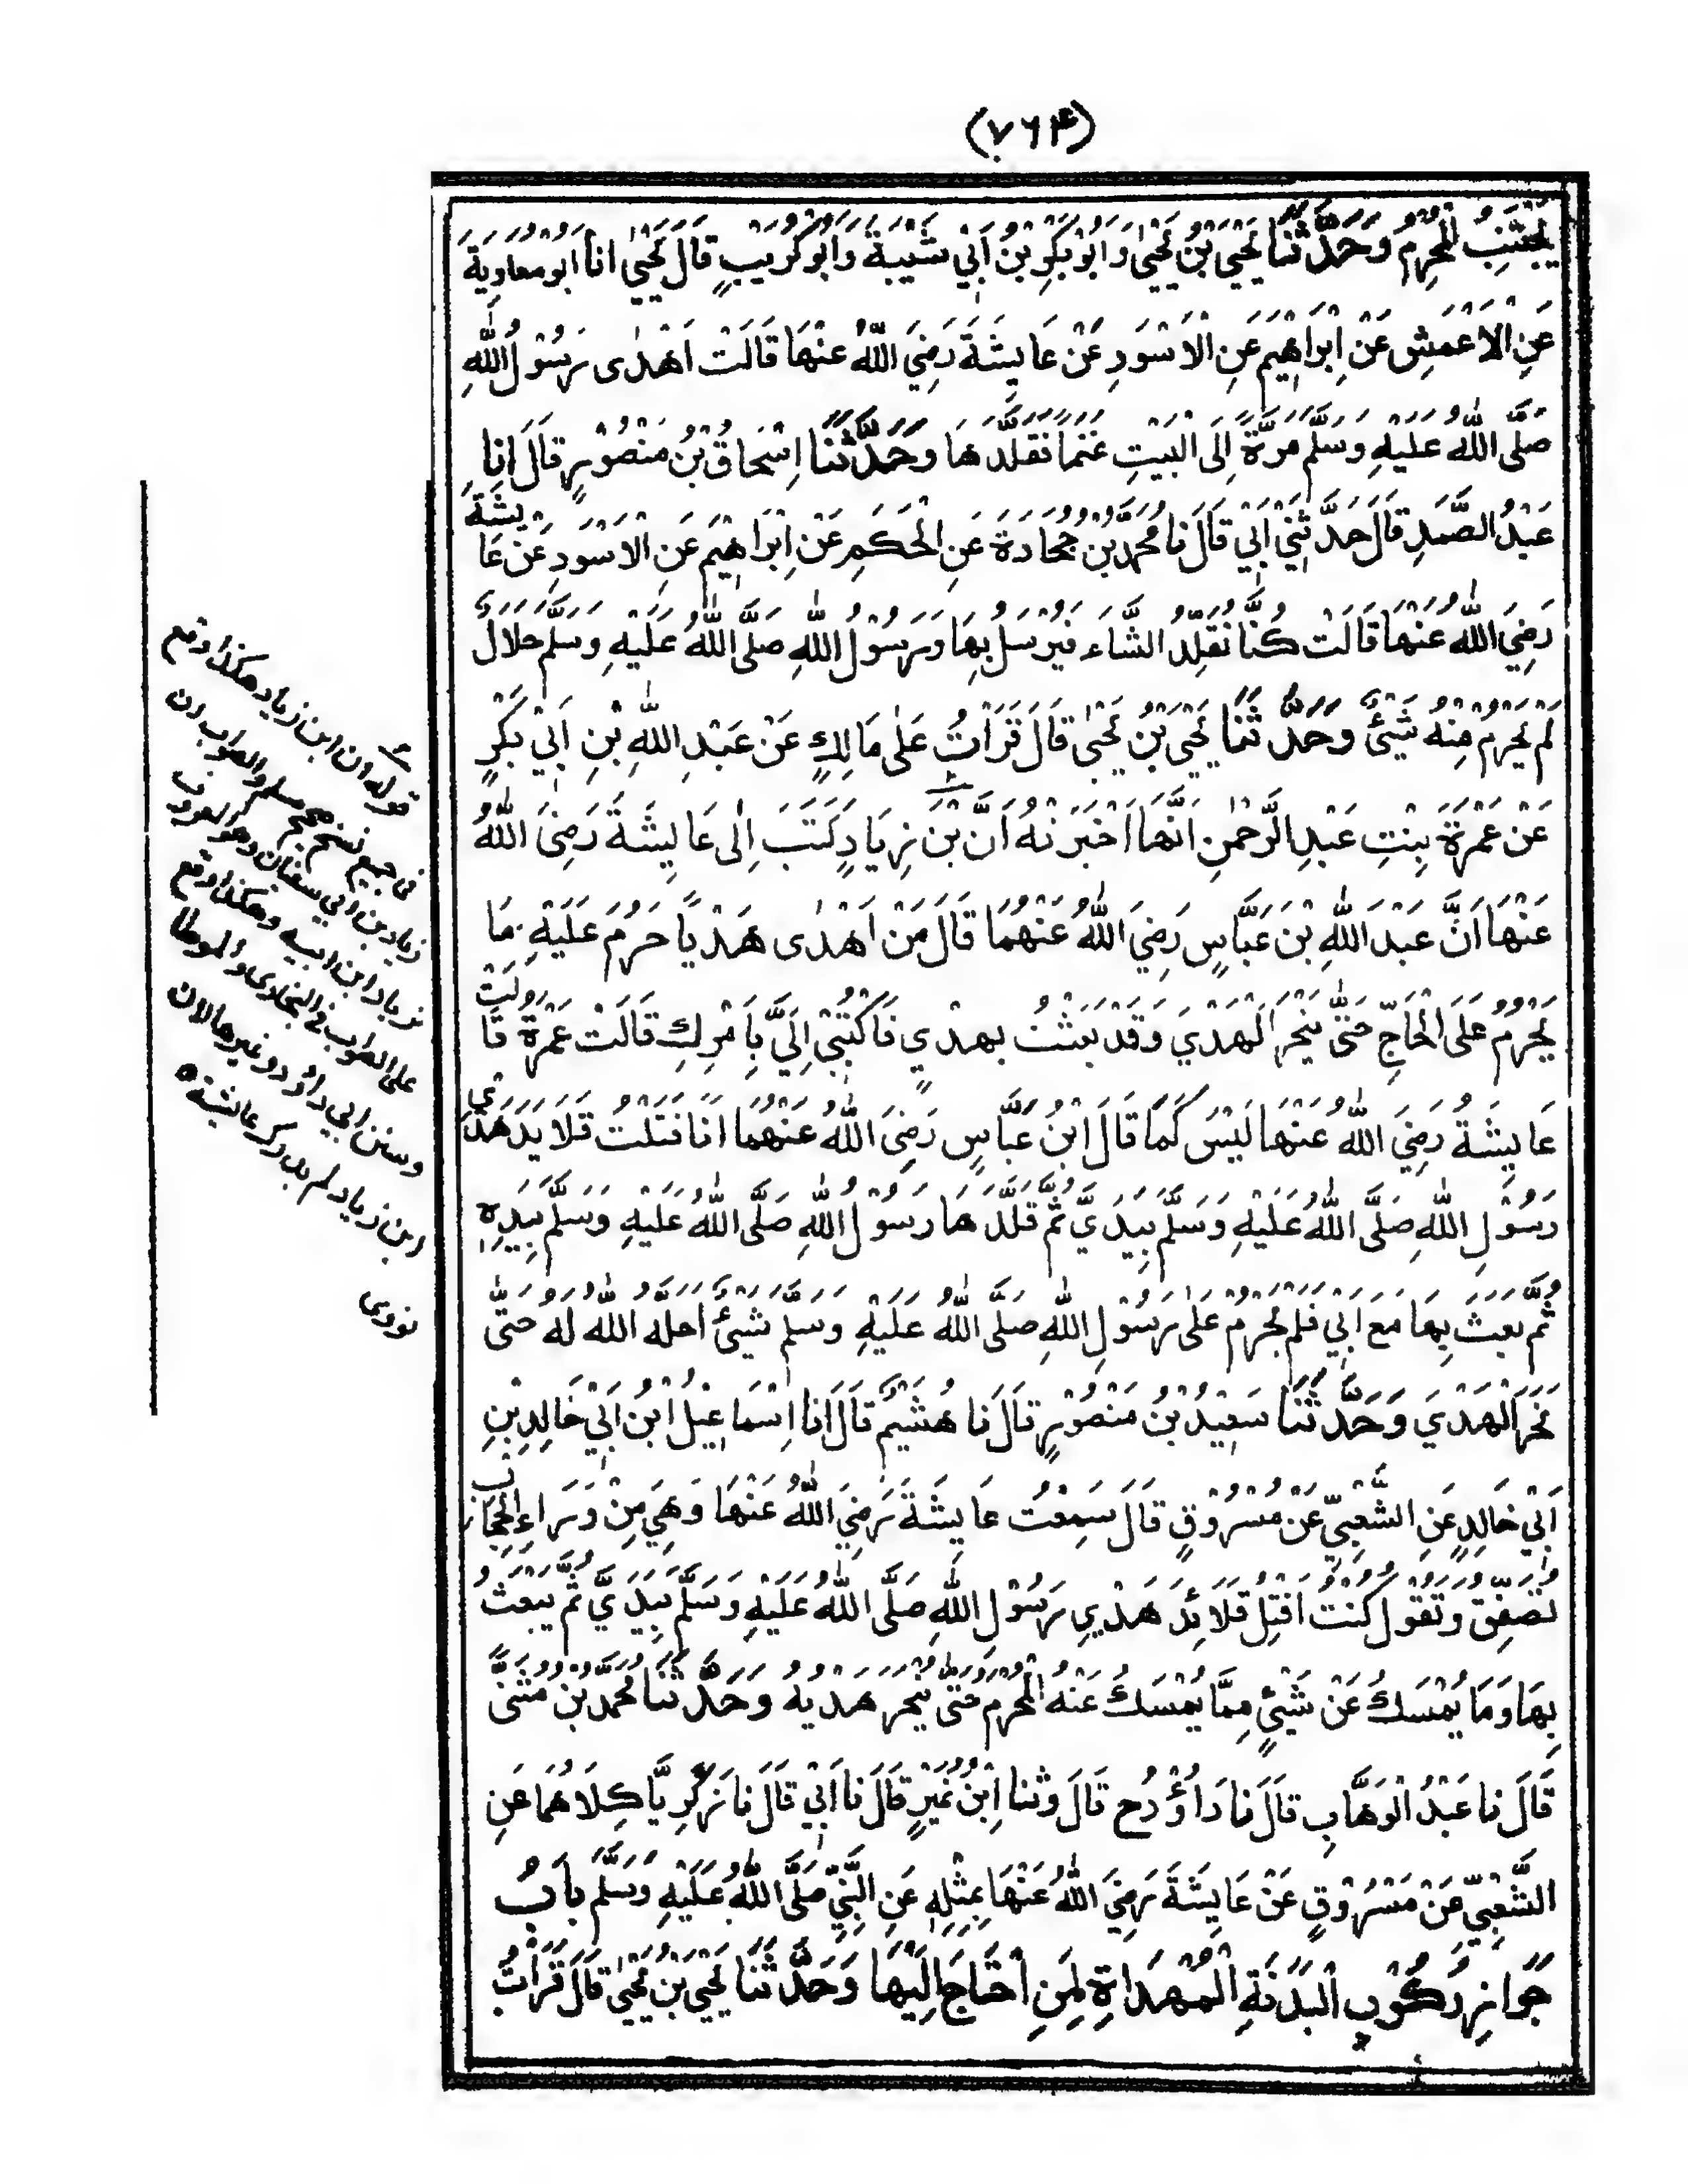 (۷۶۴)
يَجْتَنِبُ الْمُحْرِمُ وَحَدَّثَنَا يَحْيَى بْنُ يَحْيٰى وَاَبُوْ بَكْرِ بْنُ اَبِيْ شَيْبَةَ وَاَبُوْ كُرَيْبٍ قَالَ يَحْيٰى اَنَا اَبُوْ مُعَاوِيَةَ
عَنِ الْاَعْمَشِ عَنْ اِبْرَاهِيْمَ عَنِ الْاَسْوَدِ عَنْ عَايِشَةَ رَضِيَ اللّٰهُ عَنْهَا قَالَتْ اَهْدٰى رَسُوْلُ اللّٰهِ
صَلَّى اللّٰهُ عَلَيْهِ وَسَلَّمَ مَرَّةً اِلَى الْبَيْتِ غَنَمًا فَقَلَّدَهَا وَحَدَّثَنَا اِسْحَاقُ بْنُ مَنْصُوْرٍ قَالَ اَنَا
عَبْدُ الصَّمَدِ قَالَ حَدَّثَنِيْ اَبِيْ قَالَ نَا مُحَمَّدُ بْنُ جُحَادَةَ عَنِ الْحَكَمِ عَنْ اِبْرَاهِيْمَ عَنِ الْاَسْوَدِ عَنْ عَايِشَةَ
رَضِيَ اللّٰهُ عَنْهَا قَالَتْ كُنَّا نُقَلِّدُ الشَّاءَ فَيُرْسَلُ بِهَا وَرَسُوْلُ اللّٰهِ صَلَّى اللّٰهُ عَلَيْهِ وَسَلَّمَ حَلَالٌ
لَمْ يَحْرُمْ مِنْهُ شَيْئٌ وَحَدَّثَنَا يَحْيَى بْنُ يَحْيٰى قَالَ قَرَاْتُ عَلٰى مَالِكٍ عَنْ عَبْدِ اللّٰهِ بْنِ اَبِيْ بَكْرٍ
عَنْ عَمْرَةَ بِنْتِ عَبْدِ الرَّحْمٰنِ اَنَّهَا اَخْبَرَتْهُ اَنَّ بْنَ زِيَادٍ كَتَبَ اِلٰى عَايِشَةَ رَضِيَ اللّٰهُ
عَنْهَا اَنَّ عَبْدَ اللّٰهِ بْنَ عَبَّاسٍ رَضِيَ اللّٰهُ عَنْهُمَا قَالَ مَنْ اَهْدٰى هَدْيًا حَرُمَ عَلَيْهِ مَا
يَحْرُمُ عَلَى الْحَاجِّ حَتّٰى يُنْحَرَ الْهَدْيُ وَقَدْ بَعَثْتُ بِهَدْيٍ فَاكْتُبِيْ اِلَيَّ بِاَمْرِكِ قَالَتْ عَمْرَةُ قَالَتْ
عَايِشَةُ رَضِيَ اللّٰهُ عَنْهَا لَيْسَ كَمَا قَالَ ابْنُ عَبَّاسٍ رَضِيَ اللّٰهُ عَنْهُمَا اَنَا فَتَلْتُ قَلَايِدَ هَدْيِ
رَسُوْلِ اللّٰهِ صَلَّى اللّٰهُ عَلَيْهِ وَسَلَّمَ بِيَدَيَّ ثُمَّ قَلَّدَهَا رَسُوْلُ اللّٰهِ صَلَّى اللّٰهُ عَلَيْهِ وَسَلَّمَ بِيَدِهٖ
ثُمَّ بَعَثَ بِهَا مَعَ اَبِيْ فَلَمْ يَحْرُمْ عَلٰى رَسُوْلِ اللّٰهِ صَلَّى اللّٰهُ عَلَيْهِ وَسَلَّمَ شَيْئٌ اَحَلَّهُ اللّٰهُ لَهُ حَتّٰى
نَحَرَ الْهَدْيَ وَحَدَّثَنَا سَعِيْدُ بْنُ مَنْصُوْرٍ قَالَ نَا هُشَيْمٌ قَالَ اَنَا اِسْمَاعِيْلُ ابْنُ اَبِيْ خَالِدِ بْنِ
اَبِيْ خَالِدٍ عَنِ الشَّعْبِيِّ عَنْ مَسْرُوْقٍ قَالَ سَمِعْتُ عَايِشَةَ رَضِيَ اللّٰهُ عَنْهَا وَهِيَ مِنْ وَرَاءِ الْحِجَابِ
تُصَفِّقُ وَتَقُوْلُ كُنْتُ اَفْتِلُ قَلَائِدَ هَدْيِ رَسُوْلِ اللّٰهِ صَلَّى اللّٰهُ عَلَيْهِ وَسَلَّمَ بِيَدَيَّ ثُمَّ يَبْعَثُ
بِهَا وَمَا يُمْسَكُ عَنْ شَيْئٍ مِمَّا يُمْسَكُ عَنْهُ الْمُحْرِمُ حَتّٰى يُنْحَرَ هَدْيُهُ وَحَدَّثَنَا مُحَمَّدُ بْنُ مُثَنًّى
قَالَ نَا عَبْدُ الْوَهَّابِ قَالَ نَا دَاوٗدُ ح قَالَ وَثَنَا اِبْنُ نُمَيْرٍ قَالَ نَا اَبِيْ قَالَ نَا زَكَرِيَّا كِلَاهُمَا عَنِ
الشَّعْبِيِّ عَنْ مَسْرُوْقٍ عَنْ عَايِشَةَ رَضِيَ اللّٰهُ عَنْهَا بِمِثْلِهٖ عَنِ النَّبِيِّ صَلَّى اللّٰهُ عَلَيْهِ وَسَلَّمَ بَابُ
جَوَازِ رُكُوْبِ الْبَدَنَةِ الْمُهْدَاةِ لِمَنِ احْتَاجَ اِلَيْهَا وَحَدَّثَنَا يَحْيَى بْنُ يَحْيٰى قَالَ قَرَاْتُ
قوله ان ابن زياد هكذا وقع
في جميع نسخ صحيح مسلم والصواب ان
زياد بن ابي سفيان وهو المعروف
بزياد ابن ابيه وهكذا وقع
على الصواب في البخاري والموطا
وسنن ابي داؤد وغيرها لان
ابن زياد لم يدرك عايشة
نووى